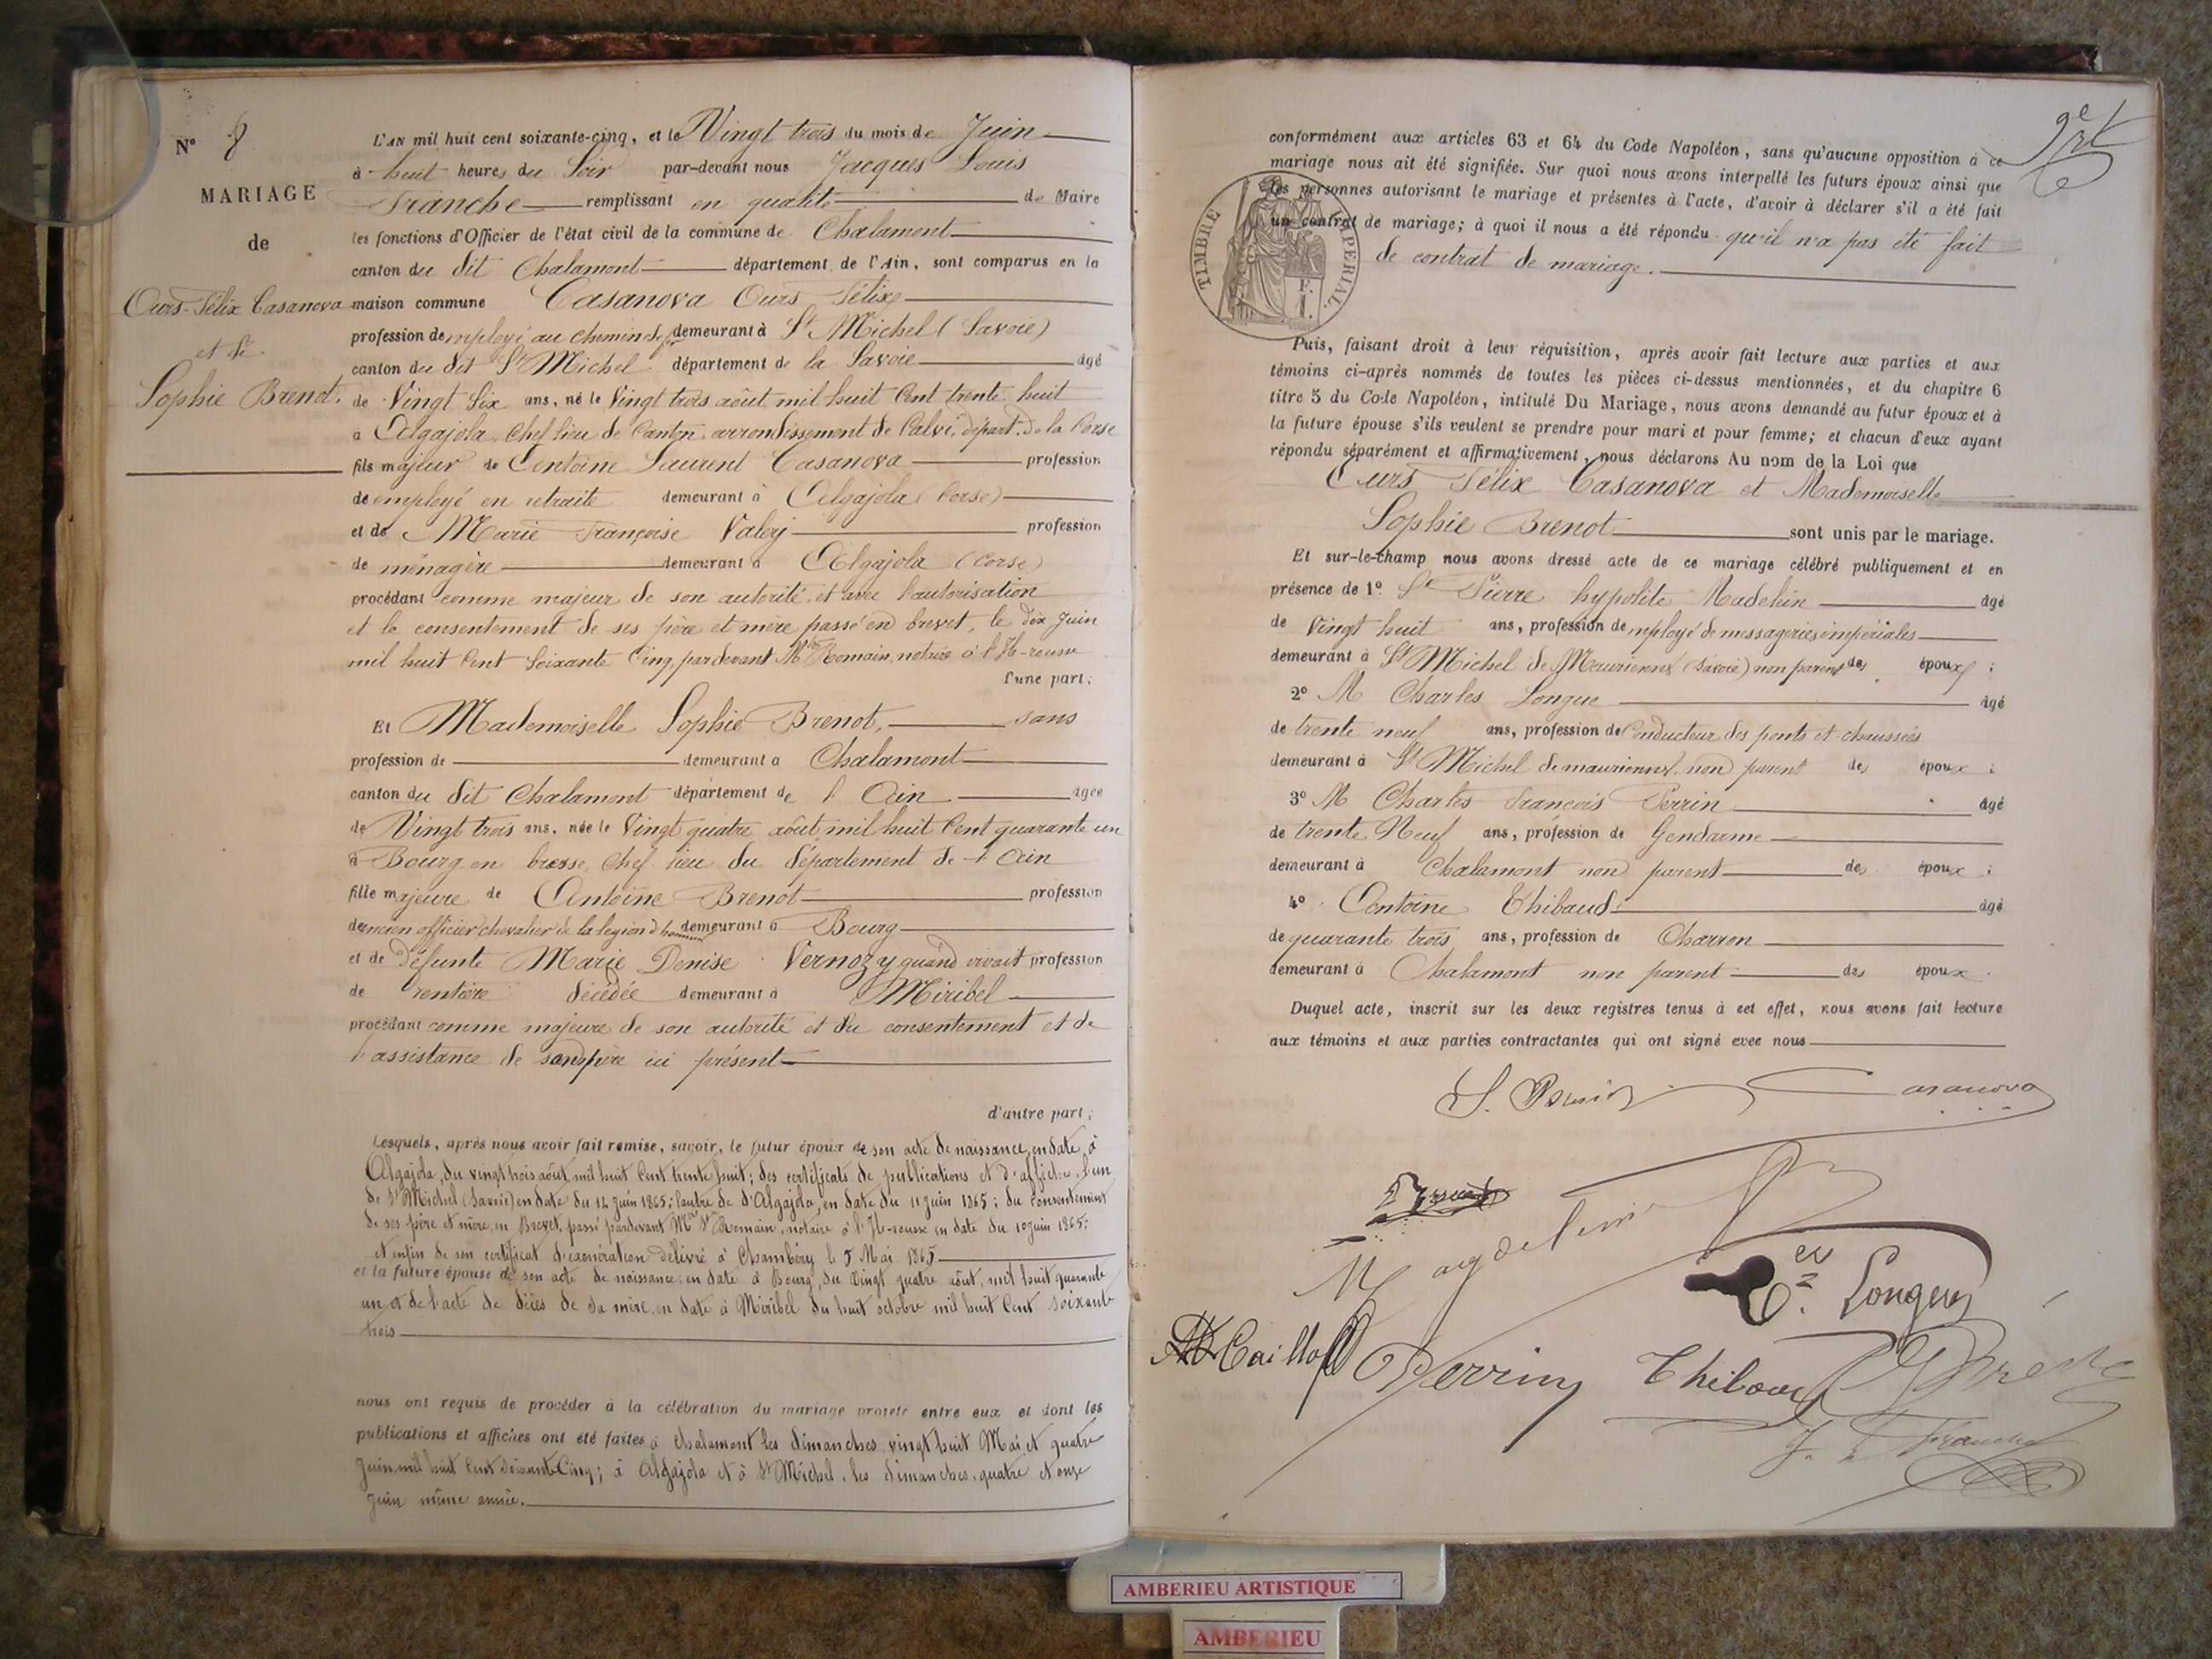 N° 8
MARIAGE
de
Ours-Félix Casanova
et de
Sophie Brenot.
L'AN mil huit cent soixante-cinq, et le Vingt trois du mois de Juin
à huit heures du Soir par-devant nous Jacques Louis
Franche remplissant en qualité de Maire
les fonctions d'Officier de l'état civil de la commune de Chalamont
canton du dit Chalamont département de l'Ain, sont comparus en la
maison commune Casanova Ours Félix
profession d'employé au chemin de fer demeurant à St Michel (Savoie)
canton du dit St Michel département de la Savoie âgé
de Vingt Six ans, né le Vingt trois août mil huit Cent trente huit
à Algajola, Chef lieu de Canton arrondissement de Calvi, départ. de la Corse
fils majeur de Antoine Laurent Casanova profession
de employé en retraite demeurant à Algajola (Corse)
et de Marie Françoise Valery profession
de ménagère demeurant à Algajola (Corse)
procédant comme majeur de son autorité et avec l'autorisation
et le consentement de ses père et mère passé en brevet, le dix Juin
mil huit Cent Soixante Cinq pardevant Mtre Romain, notaire à l'Ile-rousse
d'une part;
Et Mademoiselle Sophie Brenot, sans
profession de demeurant à Chalamont
canton du dit Chalamont département de l'Ain âgée
de Vingt trois ans, née le Vingt quatre août mil huit Cent quarante un
à Bourg en bresse, Chef lieu du département de l'Ain
fille majeure de Antoine Brenot profession
d'ancien officier chevalier de la legion d'honneur demeurant à Bourg
et de Défunte Marie Denise Vernozy quand vivait profession
de rentière décédée demeurant à Miribel
procédant comme majeure de son autorité et du consentement et de
l'assistance de son père ici présent
d'autre part;
Lesquels, après nous avoir fait remise, savoir, le futur époux de son acte de naissance en date, à
Algajola, du vingt trois août mil huit Cent trente huit; des certificats de publications et d'affiches, l'un
de St Michel (Savoie) en date du 12 juin 1865; l'autre de d'Algajola, en date du 11 juin 1865; du consentement
de ses père et mère, en Brevet, passé pardevant Mtre Romain, notaire à l'Ile-rousse en date du 10 juin 1865:
et enfin de son certificat d'exonération délivré à Chambéry le 5 Mai 1865
et la future épouse de son acte de naissance, en date à Bourg, du Vingt quatre août, mil huit quarante
un et de l'acte de décès de sa mère, en date à Miribel du huit octobre mil huit Cent soixante
trois
nous ont requis de procéder à la célébration du mariage projeté entre eux et dont les
publications et affiches ont été faites à Chalamont les dimanches, vingt huit Mai et quatre
Juin mil huit Cent Soixante Cinq; à Algajola et à St Michel, les dimanches, quatre et onze
Juin même année.
conformément aux articles 63 et 64 du Code Napoléon, sans qu'aucune opposition à ce
mariage nous ait été signifiée. Sur quoi nous avons interpellé les futurs époux ainsi que
les personnes autorisant le mariage et présentes à l'acte, d'avoir à déclarer s'il a été fait
un contrat de mariage; à quoi il nous a été répondu qu'il n'a pas été fait
de contrat de mariage.
TIMBRE IMPÉRIAL.
Puis, faisant droit à leur réquisition, après avoir fait lecture aux parties et aux
témoins ci-après nommés de toutes les pièces ci-dessus mentionnées, et du chapitre 6
titre 5 du Code Napoléon, intitulé Du Mariage, nous avons demandé au futur époux et à
la future épouse s'ils veulent se prendre pour mari et pour femme; et chacun d'eux ayant
répondu séparément et affirmativement, nous déclarons Au nom de la Loi que
Ours Félix Casanova et Mademoiselle
Sophie Brenot sont unis par le mariage.
Et sur-le-champ nous avons dressé acte de ce mariage célébré publiquement et en
présence de 1° Pierre hypolite Madelein âgé
de Vingt huit ans, profession d'employé de messageries impériales
demeurant à St Michel de Maurienne (Savoie) non parent des époux;
2° M Charles Longue âgé
de trente neuf ans, profession de Conducteur des ponts et chaussées
demeurant à St Michel de maurienne, non parent des époux;
3° M Charles François Perrin âgé
de trente Neuf ans, profession de Gendarme
demeurant à Chalamont non parent des époux;
4° Antoine Thibaud âgé
de quarante trois ans, profession de Charron
demeurant à Chalamont non parent des époux.
Duquel acte, inscrit sur les deux registres tenus à cet effet, nous avons fait lecture
aux témoins et aux parties contractantes qui ont signé avec nous
Casanova
Magdelein
Longue
Caillot Perrin Thibaud
J. L. Franche
AMBERIEU ARTISTIQUE
AMBERIEU